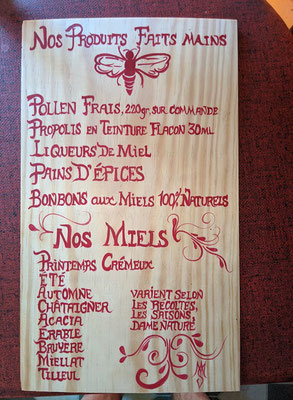 Nos Produits Faits mains
Pollen Frais, 220gr, sur commande
Propolis en Teinture Flacon 30ml
Liqueurs de Miel
Pains D'Épices
Bonbons aux Miels 100% Naturels
Nos Miels
Printemps Crémeux
Été
Automne
Châtaigner
Acacia
Erable
Bruyère
Miellat
Tilleul
varient selon
les récoltes,
les saisons,
dame nature